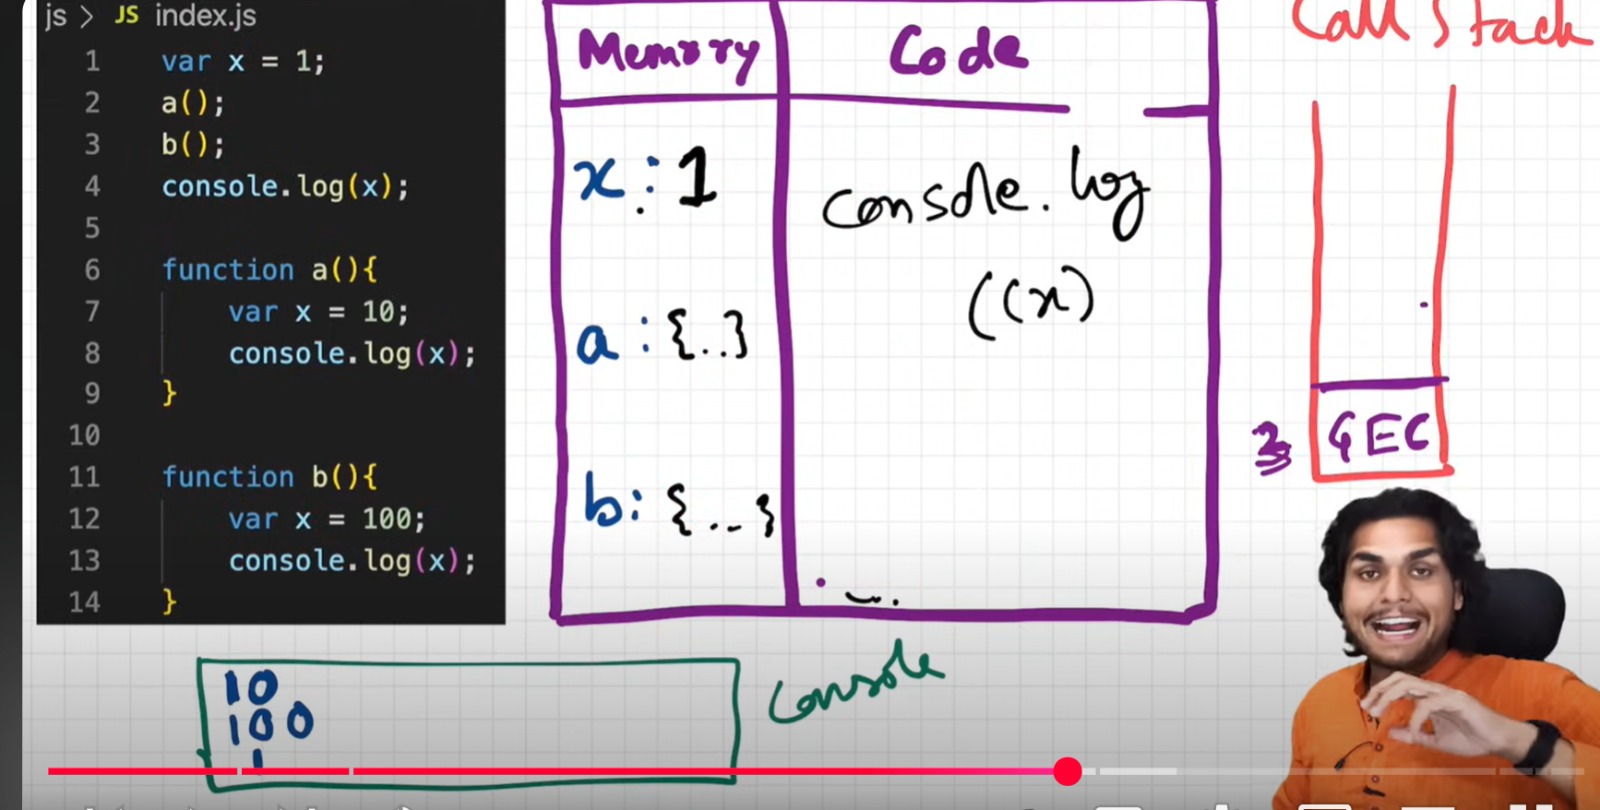 js > JS index.js
1 var x = 1;
2 a();
3 b();
4 console.log(x);
5
6 function a(){
7 var x = 10;
8 console.log(x);
9 }
10
11 function b(){
12 var x = 100;
13 console.log(x);
14 }
Memory
Code
x : 1
a : {..}
b : {..}
console.log
((x)
Call Stack
GEC
10
100
1
Console